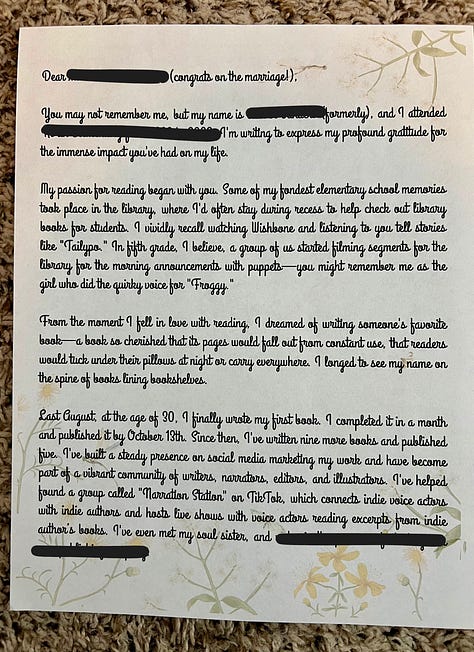 Dear (congrats on the marriage!),
You may not remember me, but my name is (formerly), and I attended
I'm writing to express my profound gratitude for
the immense impact you've had on my life.
My passion for reading began with you. Some of my fondest elementary school memories
took place in the library, where I'd often stay during recess to help check out library
books for students. I vividly recall watching Wishbone and listening to you tell stories
like "Tailypo." In fifth grade, I believe, a group of us started filming segments for the
library for the morning announcements with puppets—you might remember me as the
girl who did the quirky voice for "Froggy."
From the moment I fell in love with reading, I dreamed of writing someone's favorite
book—a book so cherished that its pages would fall out from constant use, that readers
would tuck under their pillows at night or carry everywhere. I longed to see my name on
the spine of books lining bookshelves.
Last August, at the age of 30, I finally wrote my first book. I completed it in a month
and published it by October 13th. Since then, I've written nine more books and published
five. I've built a steady presence on social media marketing my work and have become
part of a vibrant community of writers, narrators, editors, and illustrators. I've helped
found a group called "Narration Station" on TikTok, which connects indie voice actors
with indie authors and hosts live shows with voice actors reading excerpts from indie
author's books. I've even met my soul sister, and